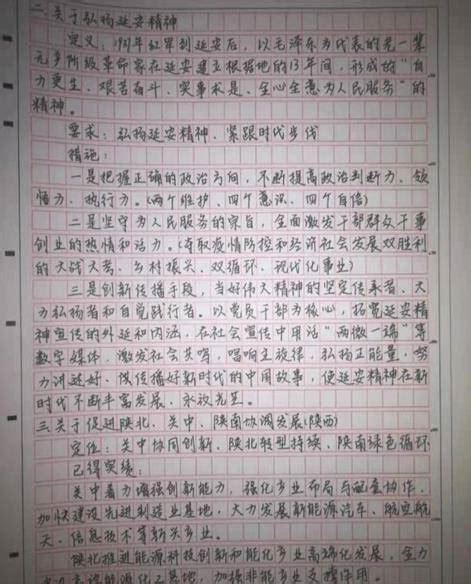 二.关于弘扬延安精神
定义:1935年红军到延安后,以毛泽东为代表的老一辈
无产阶级革命家在延安建立根据地的13年间,形成的“自
力更生、艰苦奋斗、实事求是、全心全意为人民服务”的
精神。
要求:弘扬延安精神、紧跟时代步伐
措施:
一是把握正确的政治方向,不断提高政治判断力、领
悟力、执行力。(两个维护、四个意识、四个自信)
二是坚守为人民服务的宗旨,全面激发干部群众干事
创业的热情和活力。(夺取疫情防控和经济社会发展双胜利
的大战大考、乡村振兴、双循环、现代化事业)
三是创新传播手段,当好伟大精神的坚定传承者、大
力弘扬者和自觉践行者。以党员干部为核心,拓宽延安精
神宣传的外延和内涵,在社会宣传中用活“两微一端”等
数字媒体,激发社会共鸣,唱响主旋律,弘扬正能量,努
力讲述好、传播好新时代的中国故事,使延安精神在新
时代不断丰富发展、永放光芒。
三.关于促进陕北、关中、陕南协调发展(陕西)
定位:关中协同创新、陕北转型持续、陕南绿色循环
已得突绩:
关中着力增强创新能力,强化产业布局与配套协作,
加快建设先进制造业基地,大力发展新能源汽车、航空航
天、信息技术等新兴产业。
陕北推进能源科技创新和能化产业高端化发展,全力